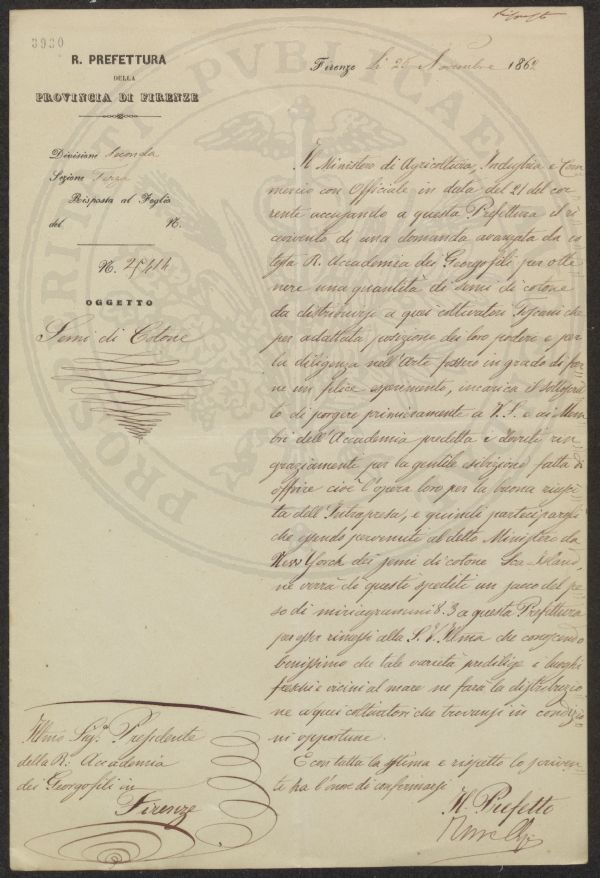 3930
R. PREFETTURA
DELLA
PROVINCIA DI FIRENZE
Firenze li 25 Novembre 1862
Divisione Seconda
Sezione Terza
Risposta al Foglio
del N.
N. 25414
OGGETTO
Semi di Cotone
Il Ministero di Agricoltura, Industria e Com
mercio con Officiale in data del 21 del cor
rente accusando a questa Prefettura il ri
cevimento di una domanda avanzata da co
testa R. Accademia dei Georgofili per otte
nere una quantità di semi di cotone
da distribuirsi a quei coltivatori Toscani che
per adattata posizione dei loro podere e per
la diligenza nell'Arte fossero in grado di far
ne un felice esperimento, incarica il sottoscrit
to di porgere primieramente a V. S. e ai Mem
bri dell'Accademia predetta i dovuti rin
graziamente per la gentile esibizione fatta di
offrire cioè l'opera loro per la buona riusci
ta dell'Intrapresa, e quindi parteciparsi
che essendo pervenuti al detto Ministero da
New Yorck dei semi di cotone Sea-Island,
ne verrà di questi spediti un sacco del pe
so di miriagrammi 8.3 a questa Prefettura
per esser rimessi alla S. V. Illma che conoscendo
benissimo che tale varietà predilige i luoghi
freschi e vicini al mare ne farà la distribuzio
ne a quei coltivatori che trovansi in condizio
ni opportune.
E con tutta la stima e rispetto lo scriven
te ha l'onor di confermarsi
Il Prefetto
Illmo Sigr. Presidente
della R. Accademia
dei Georgofili in
Firenze
PROSPERITATI PVBLICAE